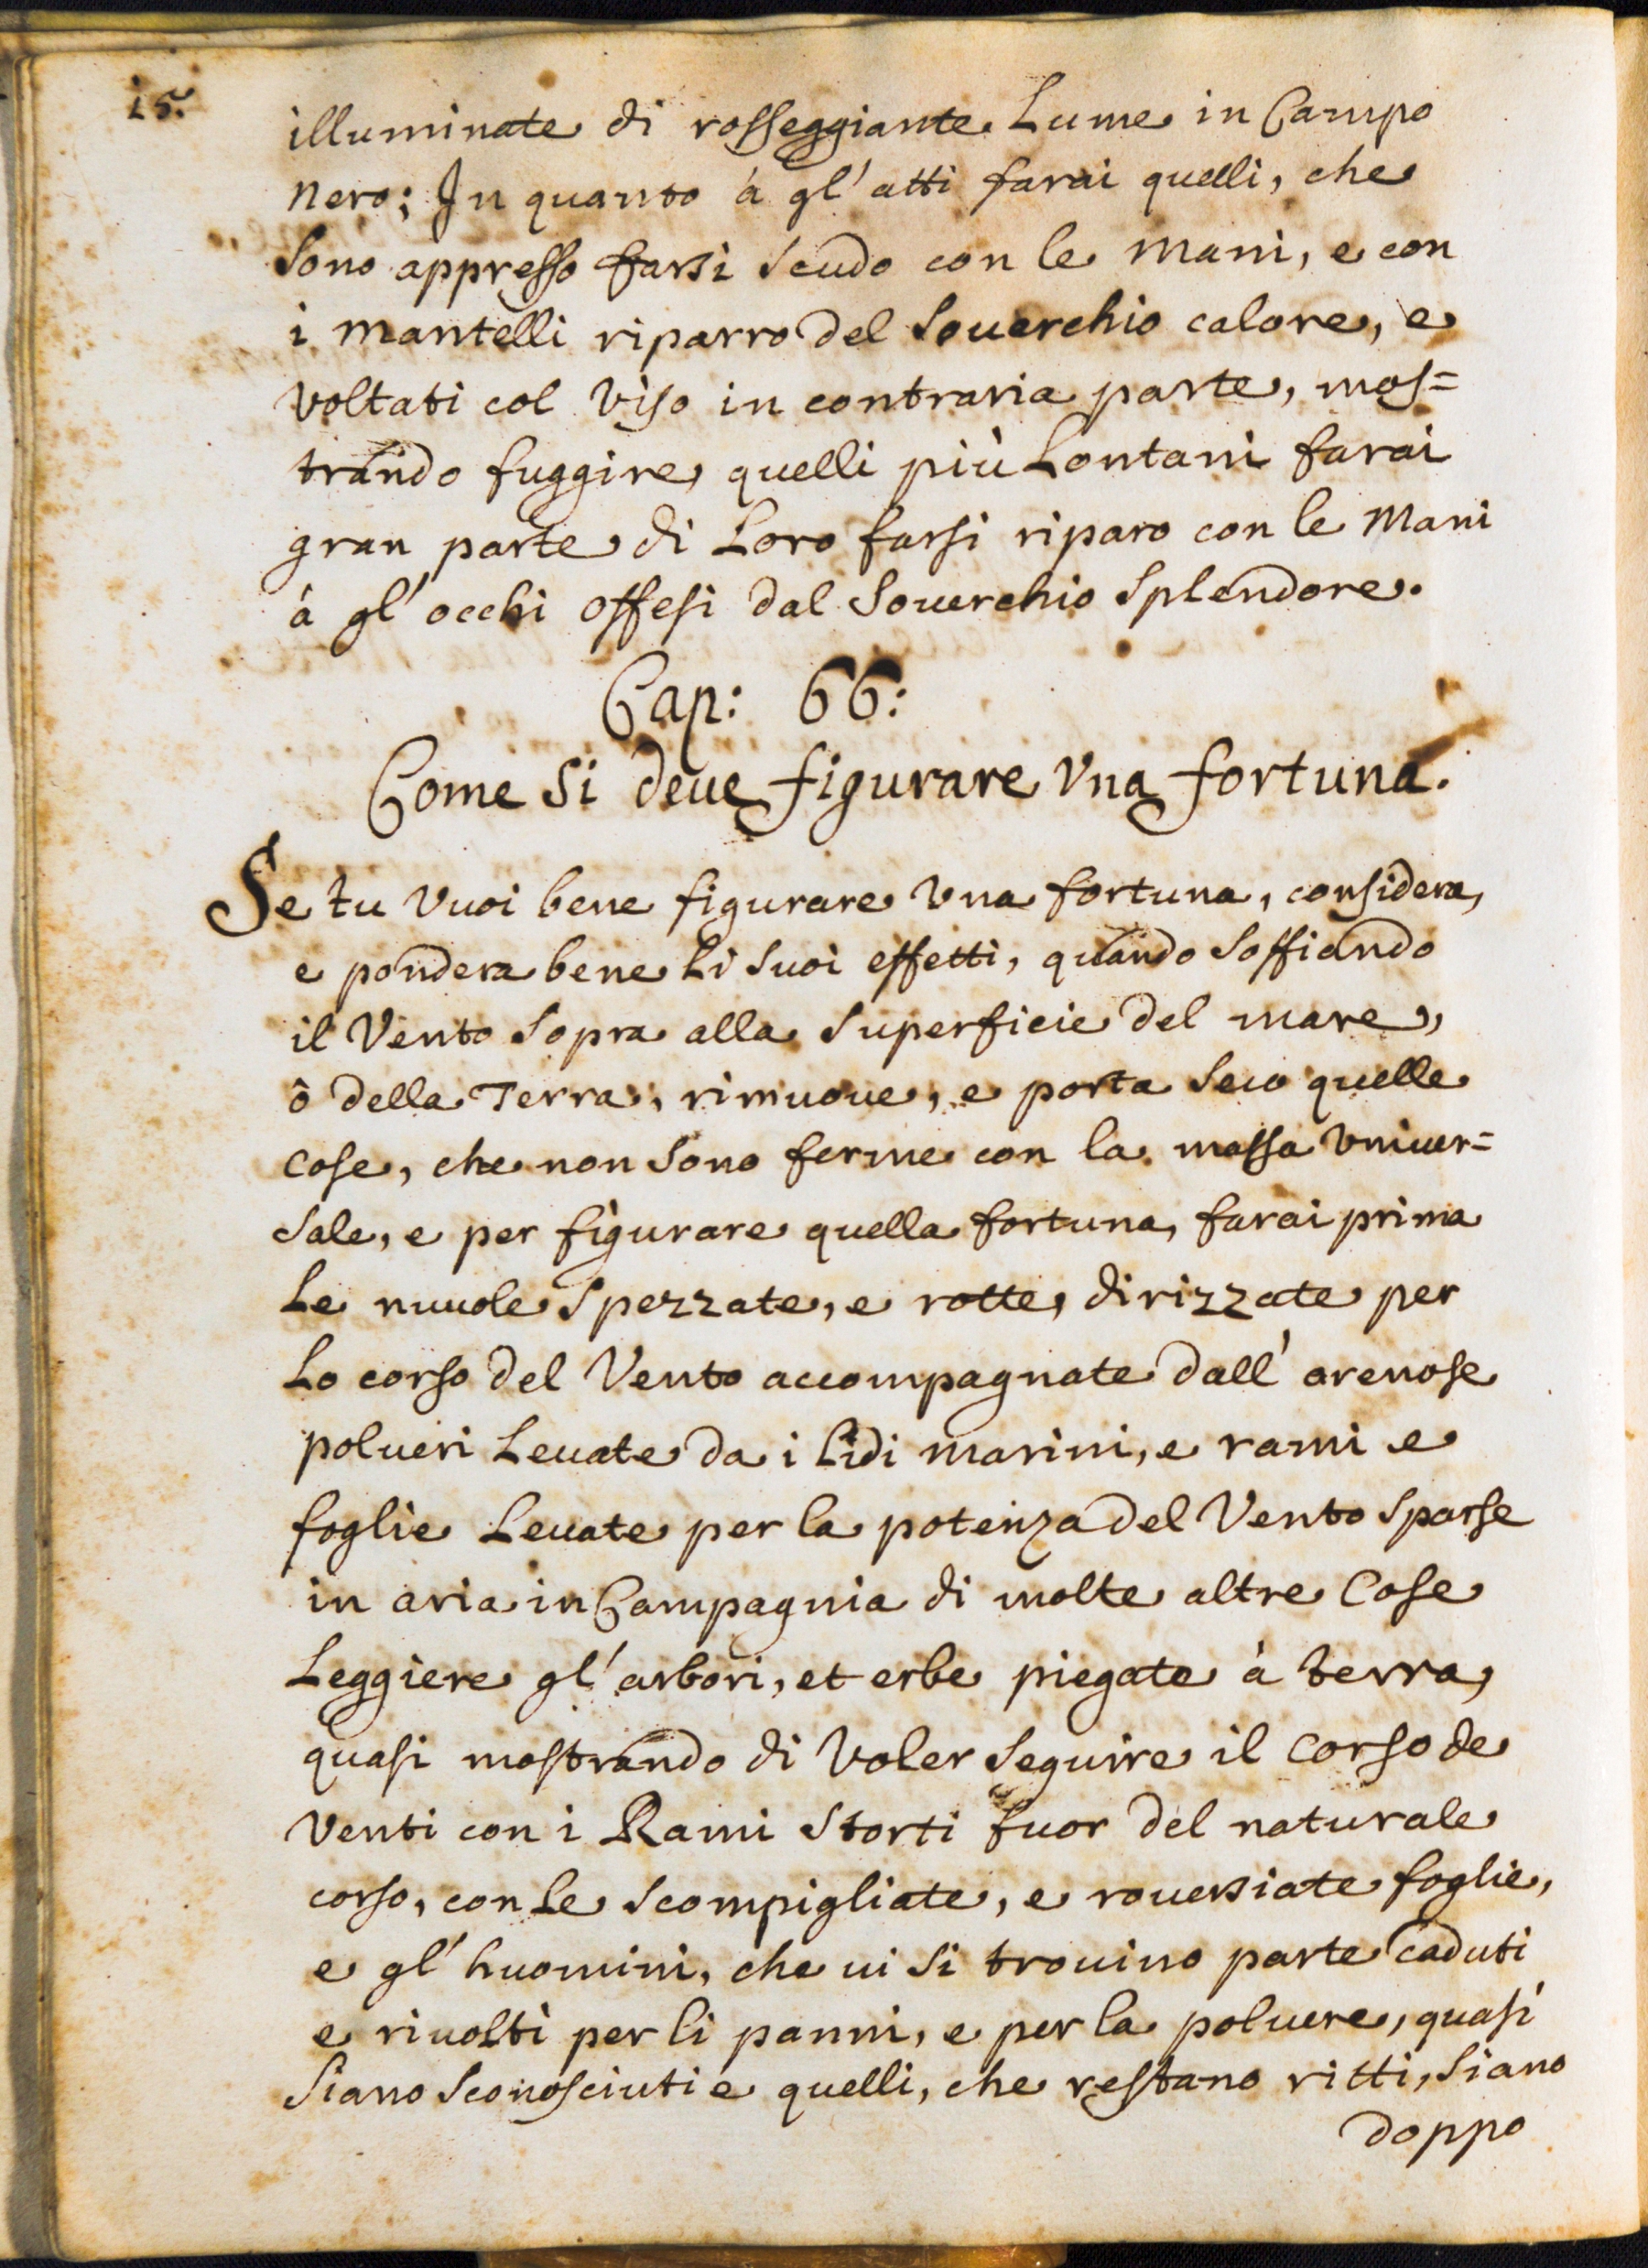 15.
illuminate di rosseggiante Lume in Campo
Nero; In quanto à gl' atti farai quelli, che
Sono appresso farsi Scudo con le Mani, e con
i Mantelli riparro del Souerchio calore, e
voltati col viso in contraria parte, mos=
trando fuggire, quelli più Lontani farai
gran parte di Loro farsi riparo con le Mani
à gl' occhi offesi dal Souerchio Splendore.
Cap: 66:
Come Si deue figurare Vna fortuna.
Se tu Vuoi bene figurare Vna fortuna, considera,
e pondera bene Li Suoi effetti, quando Soffiando
il Vento Sopra alla Superficie del mare,
ò della Terra, rimuoue, e porta Seco quelle
cose, che non Sono ferme con la massa Vniuer=
Sale, e per figurare quella fortuna, farai prima
Le nuuole Spezzate, e rotte, dirizzate per
Lo corso del Vento accompagnate dall' arenose
polueri Leuate da i Lidi marini, e rami e
foglie Leuate per la potenza del Vento Sparse
in aria in Campagnia di molte altre Cose
Leggiere gl' arbori, et erbe piegate à terra,
quasi mostrando di Voler Seguire il Corso de
Venti con i Rami Storti fuor del naturale
corso, con Le Scompigliate, e rouersiate foglie,
e gl' huomini, che ui Si trouino parte caduti
e riuolti per li panni, e per la poluere, quasi
Siano Sconosciuti e quelli, che restano ritti, Siano
doppo